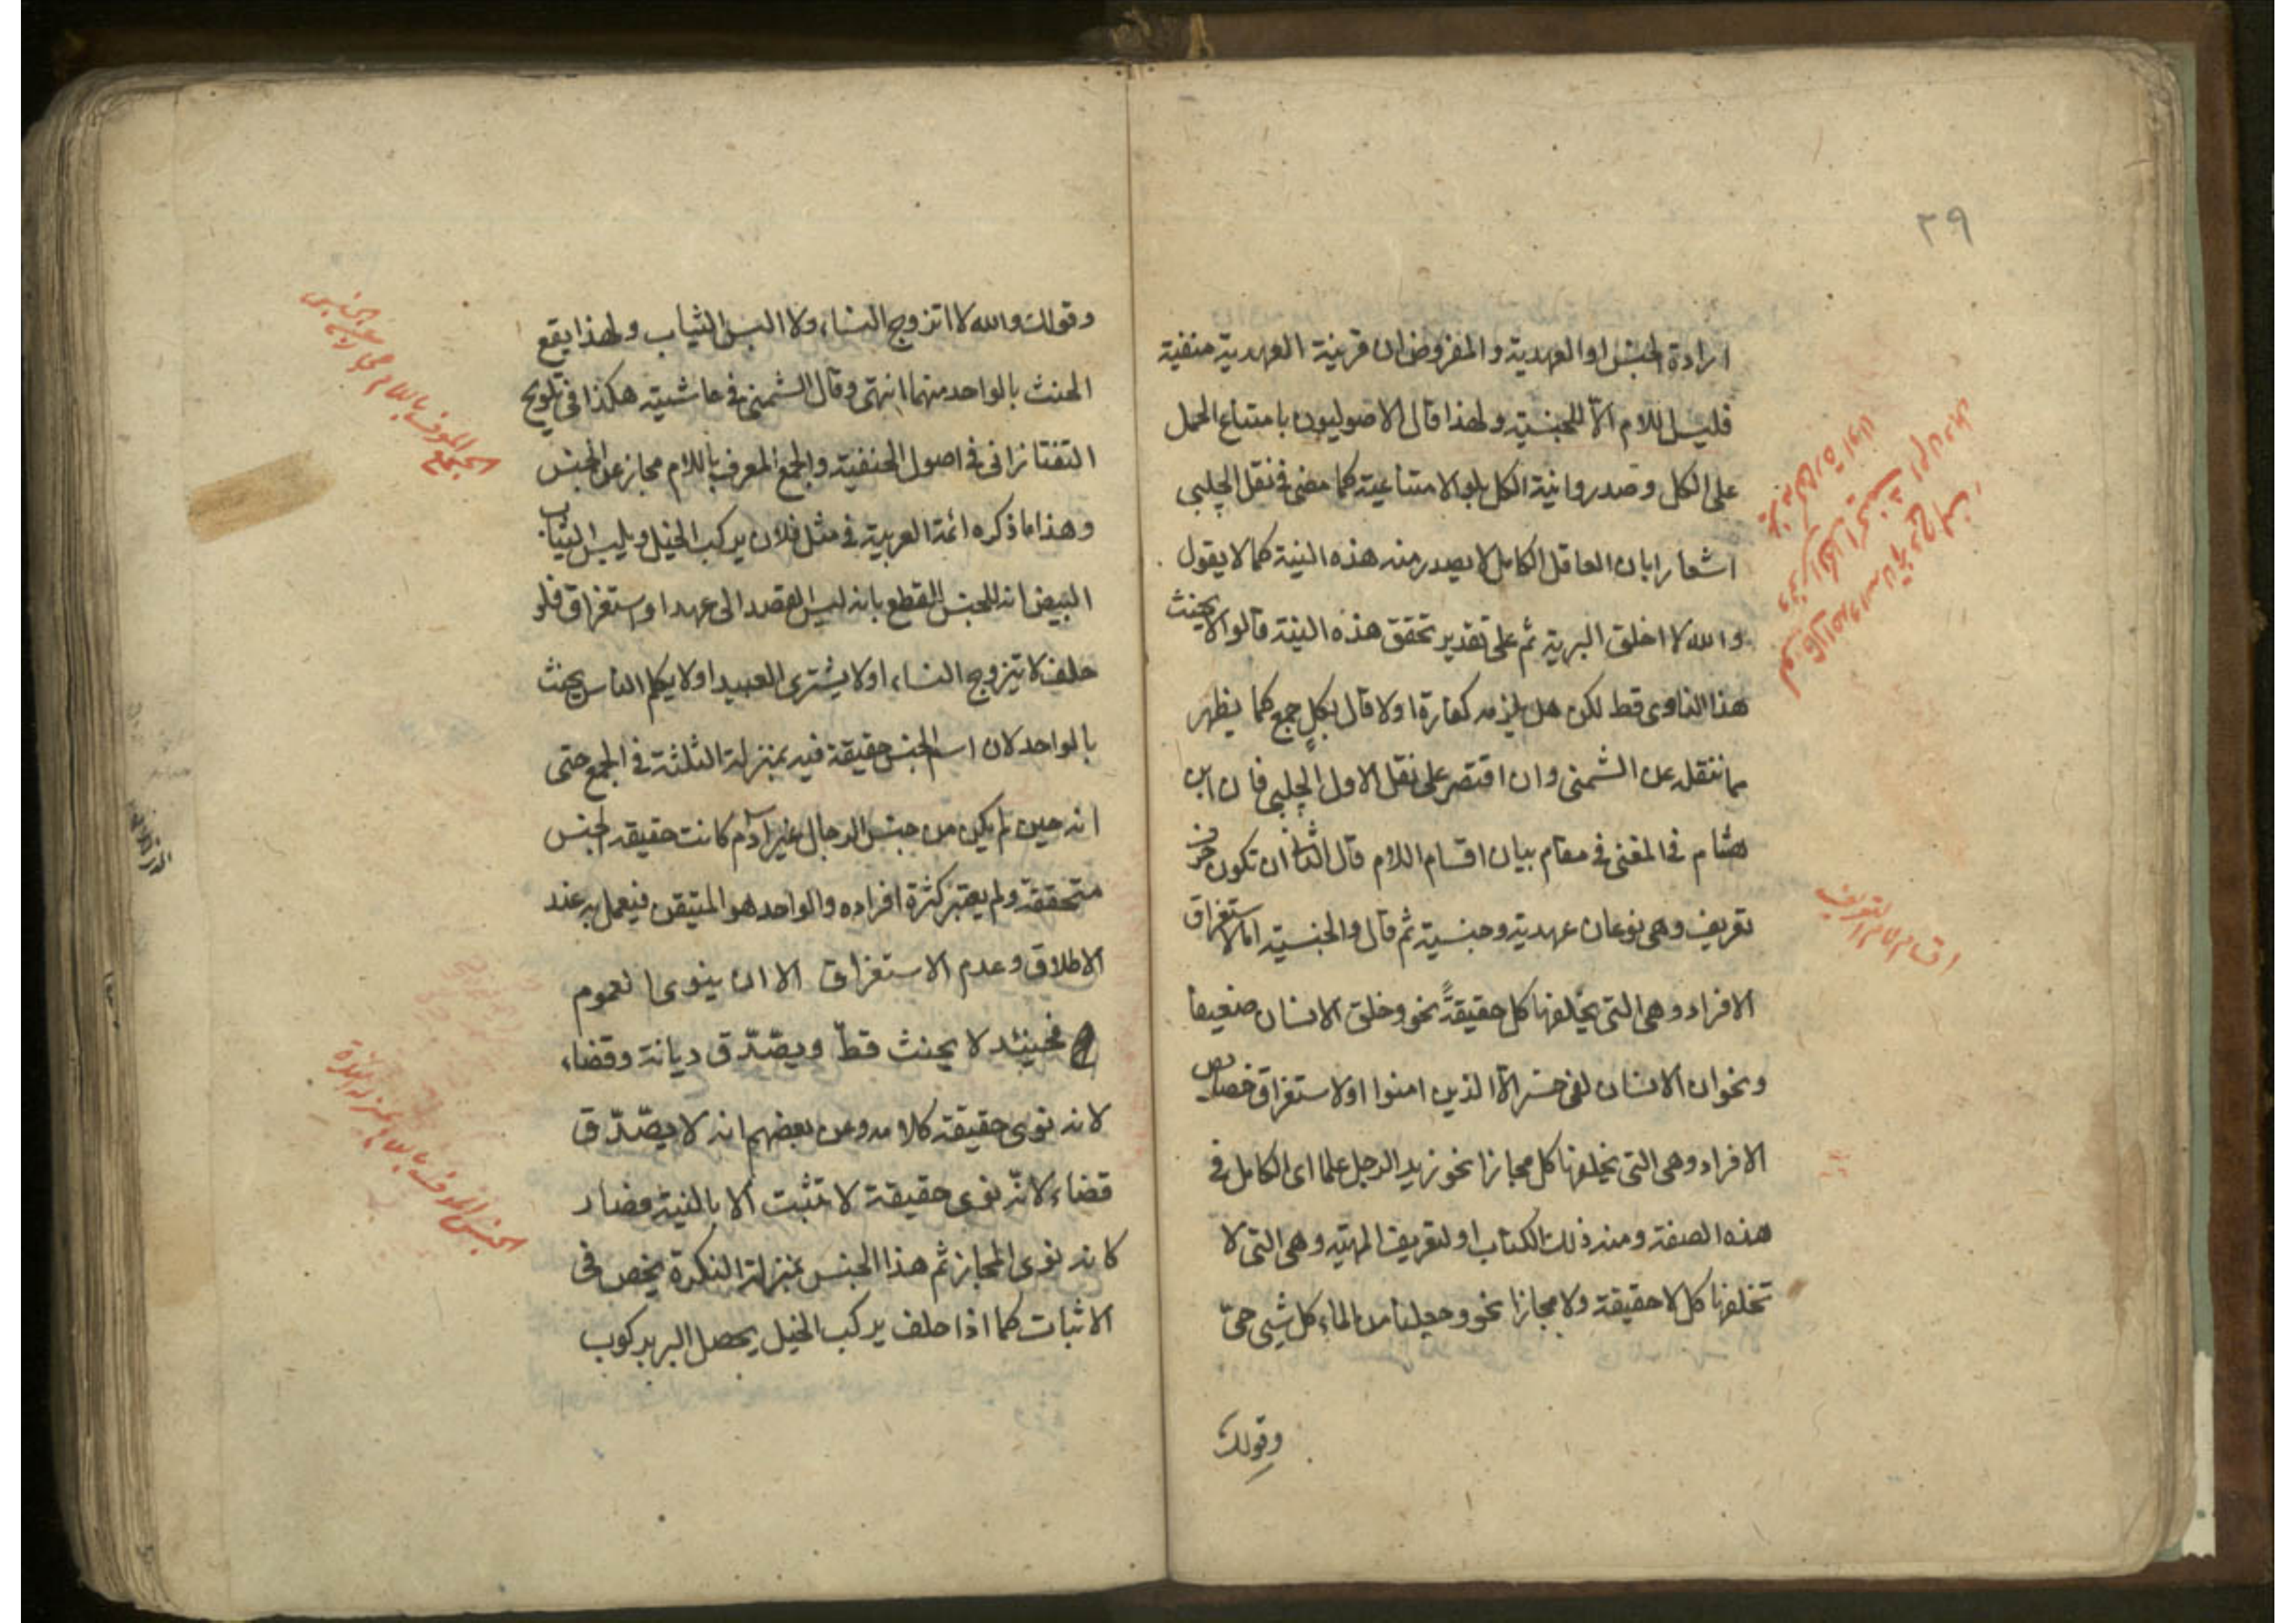 ٢٩
ارادة الجنس او العهدية والمفروض ان قرينة العهدية منفية
فليس اللام الا للجنسية ولهذا قال الاصوليون بامتناع الحمل
على الكل وصدروا نية الكل بلو الامتناعية كما مضى في نقل الچلبي
اشعارا بان العاقل الكامل لا يصدر منه هذه النية كما لا يقول
والله لا اخلق البرية ثم على تقدير تحقق هذه النية قالوا لا يحنث
هذا الناوى قط لكن هل يلزمه كفارة اولا قال بكلٍ جمع كما يظهر
مما ننقله عن الشمنى وان اقتصر على نقل الاول الچلبي فان ابن
هشام فى المغنى فى مقام بيان اقسام اللام قال الثانى ان تكون حرف
تعريف وهى نوعان عهدية وجنسية ثم قال والجنسية اما لاستغراق
الافراد وهى التى يخلفها كل حقيقةً نحو وخلق الانسان ضعيفا
ونحو ان الانسان لفى خسر الا الذين امنوا او لاستغراق خصايص
الافراد وهى التى يخلفها كل مجازا نحو زيد الرجل علما اى الكامل فى
هذه الصفة ومنه ذلك الكتاب او لتعريف المهية وهى التى لا
تخلفها كل لا حقيقة ولا مجازا نحو وجعلنا من الماء كل شيى حىّ
وقولك
اقسام لام التعريف
وقولك والله لا اتزوج النساء ولا البس الثياب ولهذا يقع
الحنث بالواحد منهما انتهى وقال الشمنى فى حاشيته هكذا فى تلويح
التفتازانى فى اصول الحنفية والجمع المعرف باللام مجاز عن الجنس
وهذا ما ذكره ائمة العربية فى مثل فلان يركب الخيل ويلبس الثياب
البيض انه للجنس للقطع بانه ليس القصد الى عهد او استغراق فلو
حلف لا يتزوج النساء او لا يشترى العبيد او لا يكلم الناس يحنث
بالواحد لان اسم الجنس حقيقة فيه بمنزلة الثلثة فى الجمع حتى
انه حين لم يكن من جنس الرجال غير آدم كانت حقيقة الجنس
متحققة ولم يعتبر كثرة افراده والواحد هو المتيقن فيعمل به عند
الاطلاق وعدم الاستغراق الا ان ينوى العموم
فحينئذ لا يحنث قطّ ويصّدّق ديانة وقضاء
لانه نوى حقيقة كلامه وعن بعضهم انه لا يصّدّق
قضاء لانّه نوى حقيقة لا تثبت الا بالنية فصار
كانه نوى المجاز ثم هذا الجنس بمنزلة النكرة يخص فى
الاثبات كما اذا حلف يركب الخيل يحصل البر بركوب
الجمع المعرف باللام مجاز عن الجنس
الجنس المعرف باللام بمنزلة النكرة